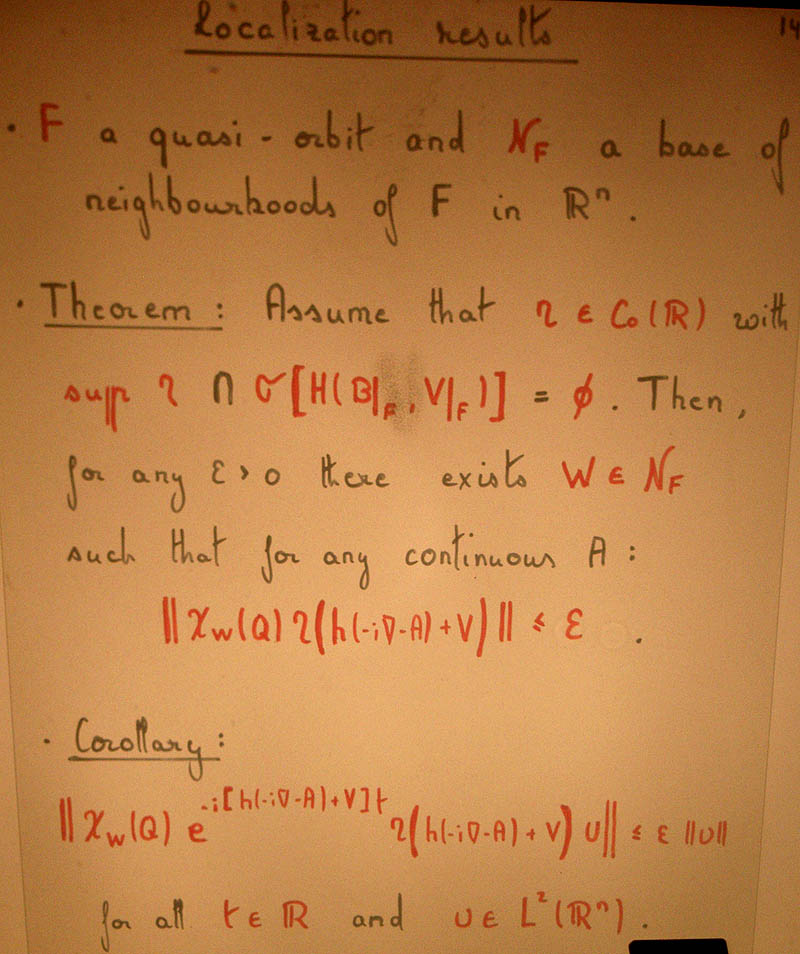 Localization results
14
· F a quasi-orbit and 𝒩_F a base of
neighbourhoods of F in ℝⁿ.
· Theorem: Assume that η ∈ C₀(ℝ) with
supp η ∩ σ[H(B|_F, V|_F)] = ∅. Then,
for any ε > 0 there exists W ∈ 𝒩_F
such that for any continuous A:
‖χ_W(Q) η(h(-i∇-A)+V)‖ ≤ ε .
· Corollary:
‖χ_W(Q) e^{-i[h(-i∇-A)+V]t} η(h(-i∇-A)+V) u‖ ≤ ε ‖u‖
for all t ∈ ℝ and u ∈ L²(ℝⁿ).